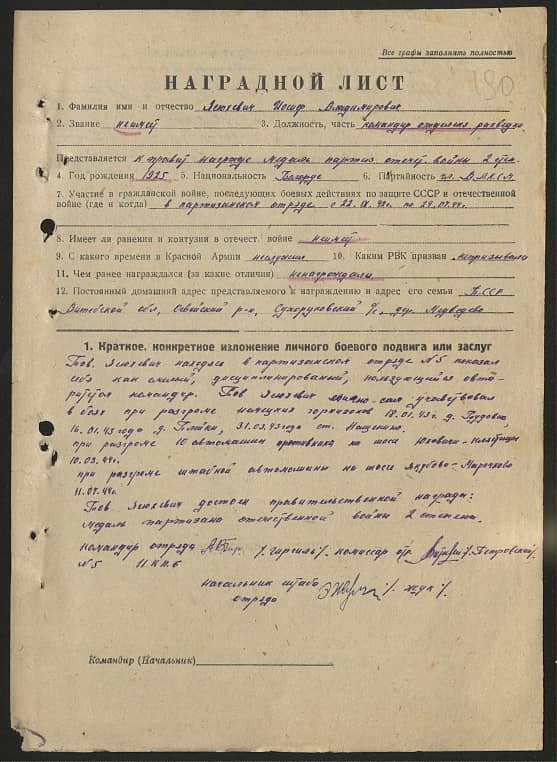 Все графы заполнять полностью
180
НАГРАДНОЙ ЛИСТ
1. Фамилия имя и отчество Ясюкевич Иосиф Владимирович
2. Звание неимеет 3. Должность, часть командир отделения разведки
Представляется к правит награде Медаль партиз отеч войны 2 степ.
4. Год рождения 1925 5. Национальность 6. Партийность чл. ВЛКСМ
7. Участие в гражданской войне, последующих боевых действиях по защите СССР и отечественной
войне (где и когда) в партизанском отряде с 22.IX.42г. по 24.07.44г.
8. Имеет ли ранения и контузии в отечест. войне неимеет
9. С какого времени в Красной Армии неслужил 10. Каким РВК призван непризывался
11. Чем ранее награждался (за какие отличия) ненаграждался
12. Постоянный домашний адрес представляемого к награждению и адрес его семьи БССР
Витебской обл, Освейский р-н, с/с, дер. Медведево
1. Краткое, конкретное изложение личного боевого подвига или заслуг
Тов. находясь в партизанском отряде №5 показал
себя как смелый, дисциплинированный, пользующейся авто-
ритетом командир. Тов участвовал
в боях при разгроме немецких гарнизонов 18.01.43г д.
16.01.43 года д. 31.03.43 года ст.
при разгроме 10 автомашин противника на шоссе Юховичи-Клястицы
10.03.44г.
при разгроме штабной автомашины на шоссе
11.04.44г.
Тов. достоен правительственной награды:
Медаль партизана отечественной войны 2 степени.
Командир отряда комиссар отр. /Петровский/
№5
Начальник штаба /Жук/
отряда
Командир (Начальник)